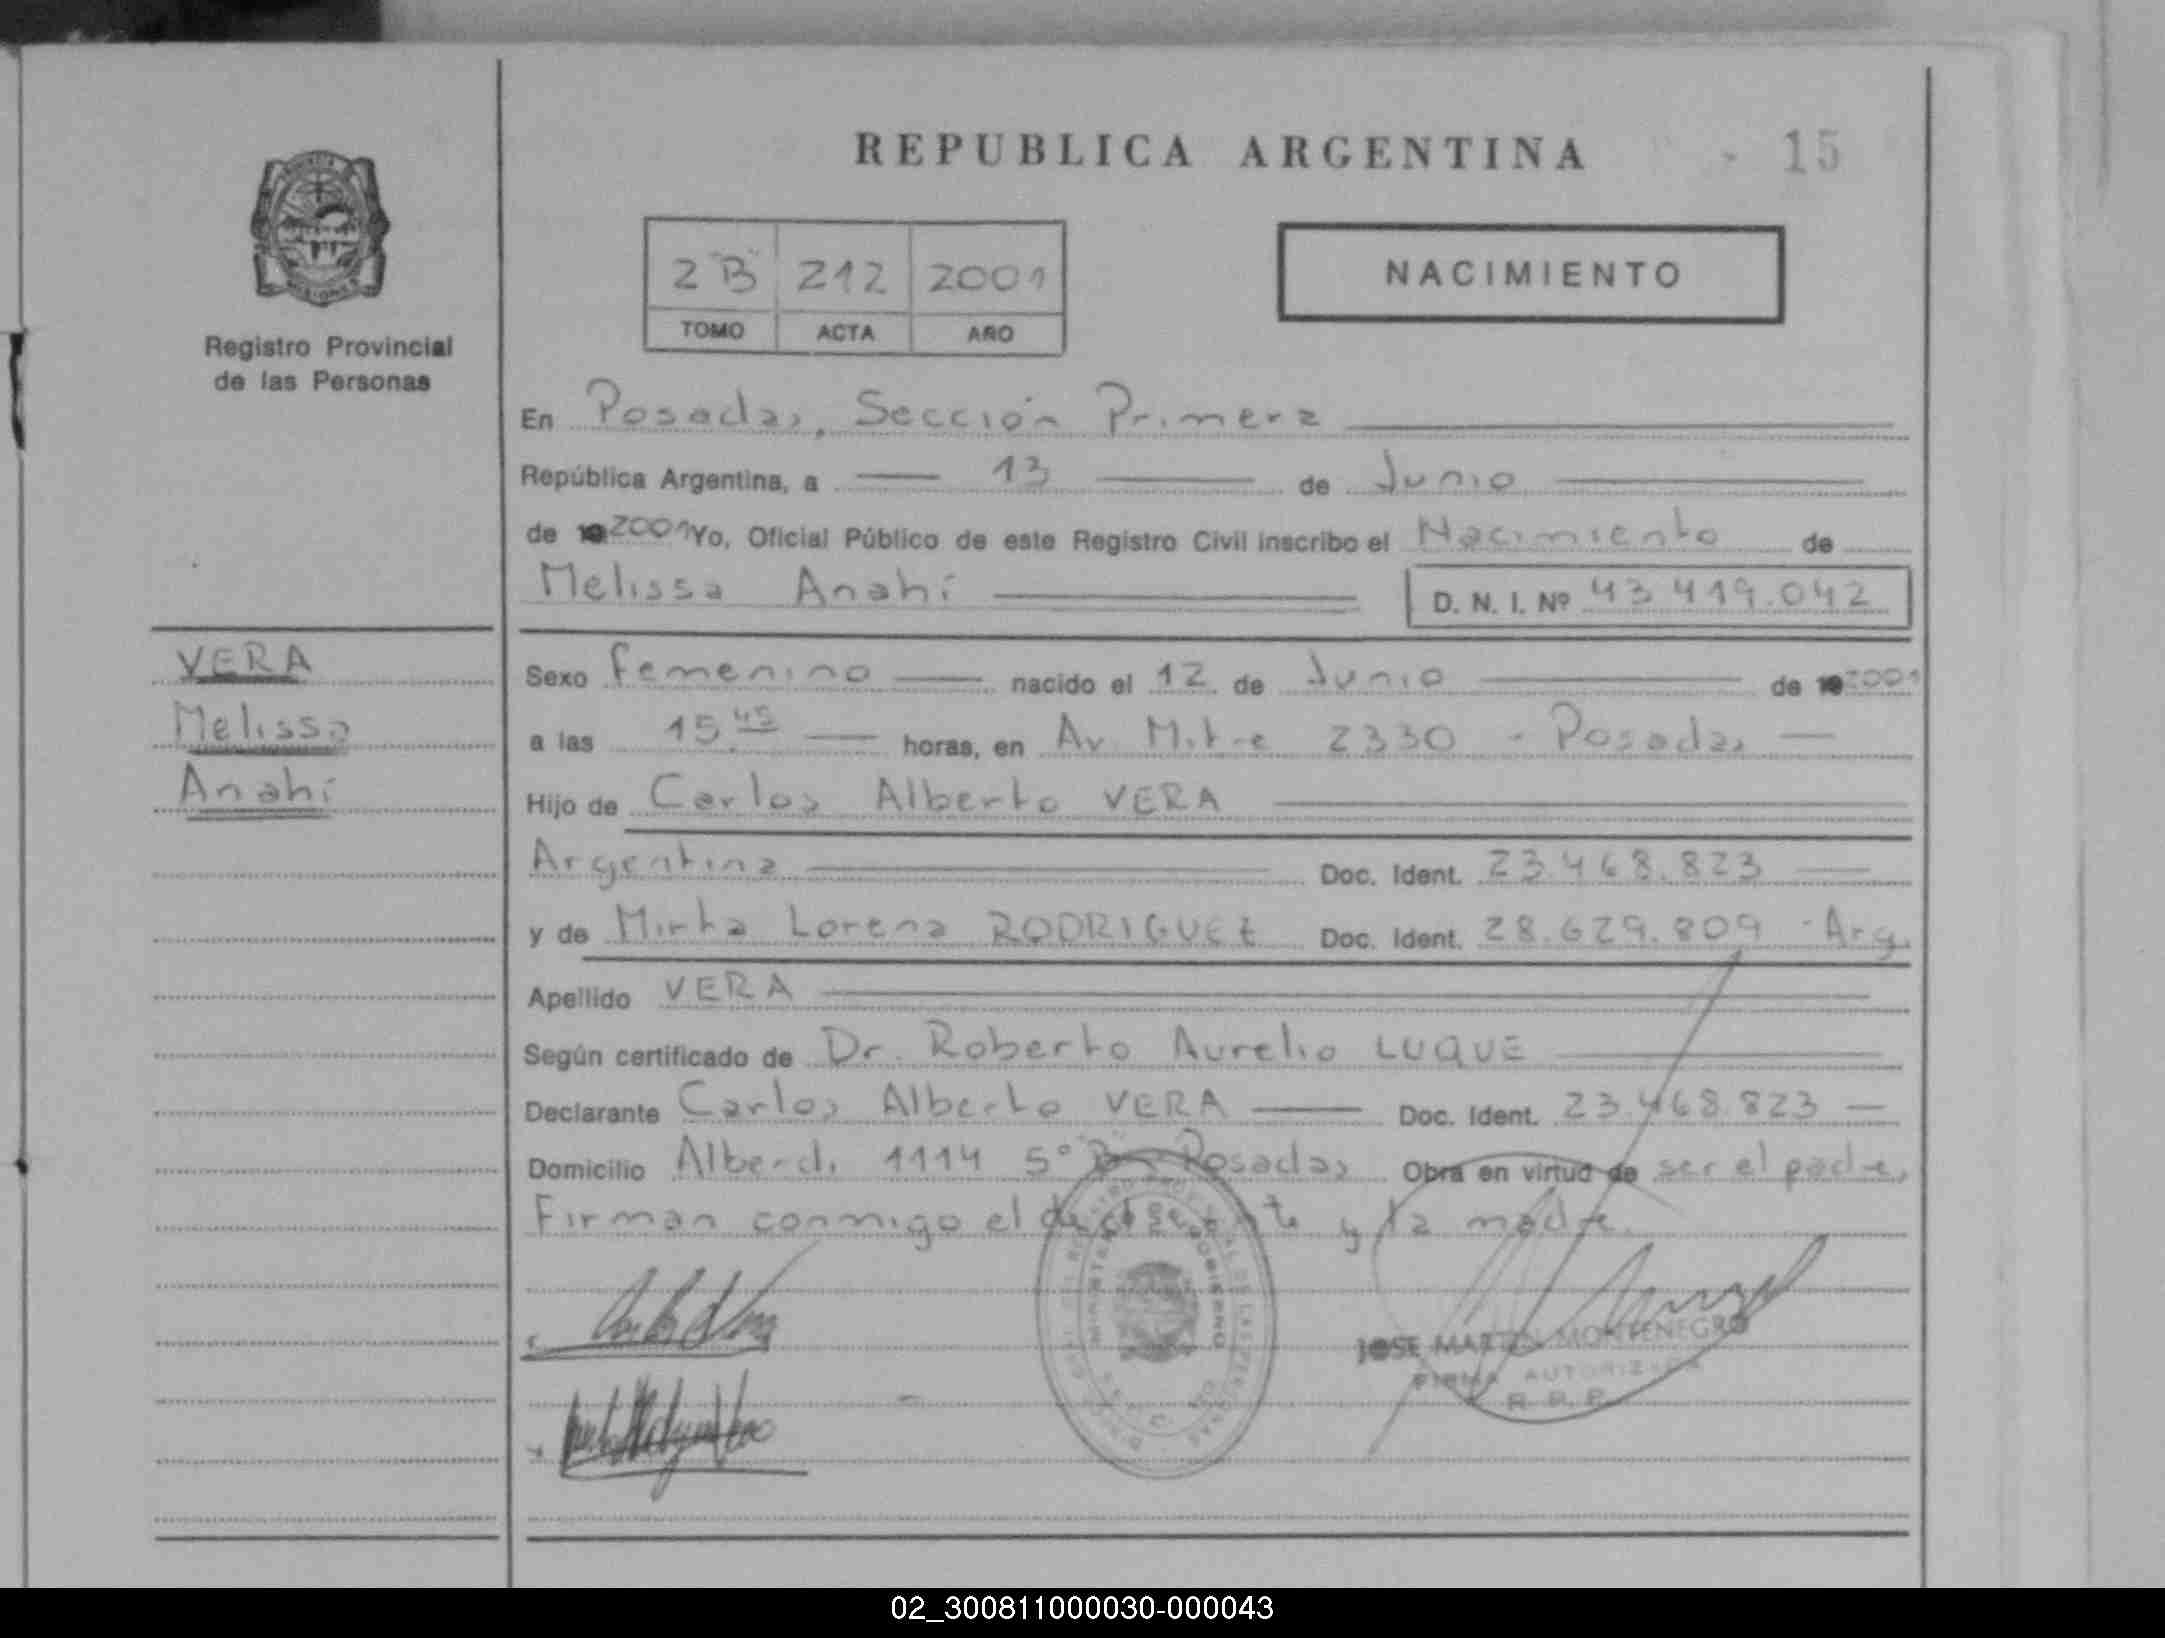 REPUBLICA ARGENTINA
15
Registro Provincial
de las Personas
2 "B" 212 2001
TOMO ACTA AÑO
NACIMIENTO
En Posadas, Sección Primera
República Argentina, a 13 de Junio
de 19 2001 Yo, Oficial Público de este Registro Civil inscribo el Nacimiento de
Melissa Anahí D. N. I. Nº 43.419.042
VERA
Melissa
Anahí
Sexo femenino nacido el 12 de Junio de 19 2001
a las 15.45 horas, en Av. Mitre 2330 - Posadas
Hijo de Carlos Alberto VERA
Argentina Doc. Ident. 23.468.823
y de Mirta Lorena RODRIGUEZ Doc. Ident. 28.629.809 - Arg.
Apellido VERA
Según certificado de Dr. Roberto Aurelio LUQUE
Declarante Carlos Alberto VERA Doc. Ident. 23.468.823
Domicilio Alberdi 1114 5º "B" - Posadas Obra en virtud de ser el padre,
Firman conmigo el declarante y la madre.
JOSE MARTIN MONTENEGRO
FIRMA AUTORIZADA
R. P. P.
02_300811000030-000043